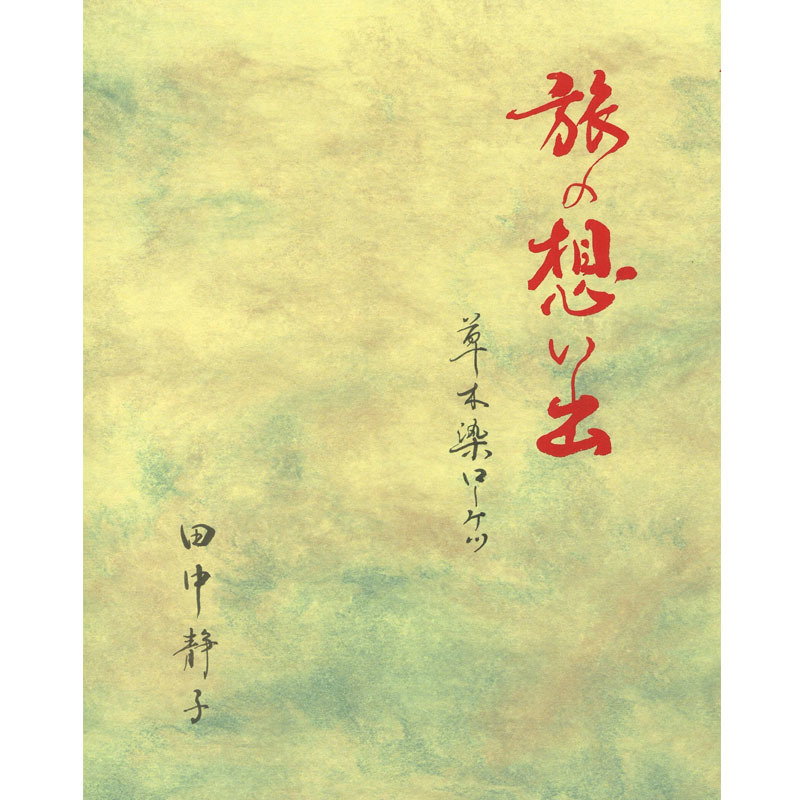 旅の想い出
草木染ローケツ
田中静子